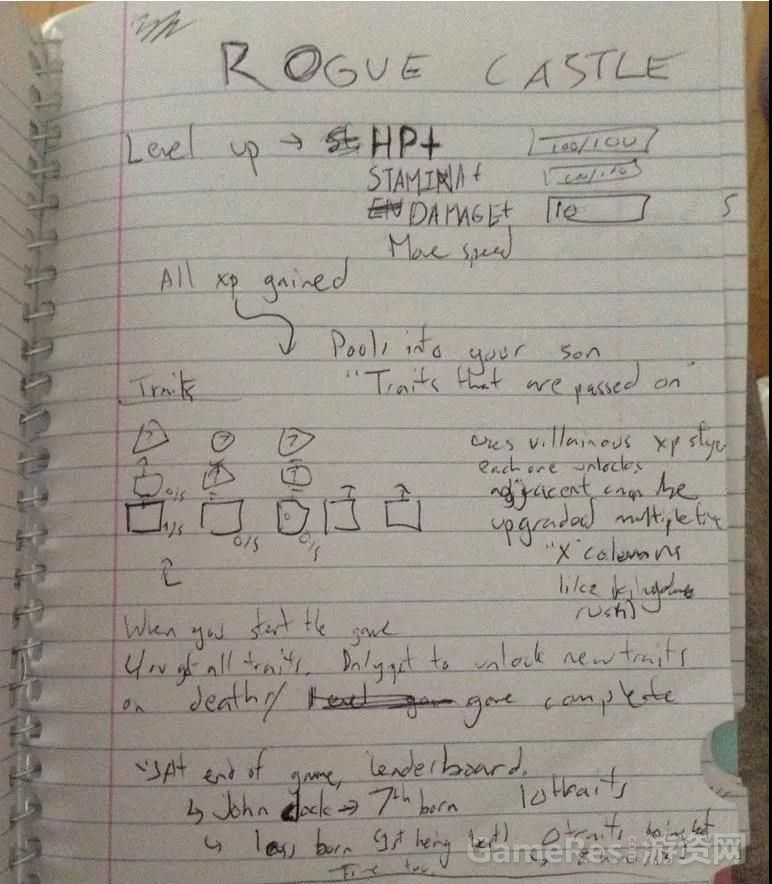 ROGUE CASTLE
Level up → HP+ 100/100
STAMINA+ 100/100
DAMAGE+ 10 5
Move speed
All xp gained
Pools into your son
Traits "Traits that are passed on"
? ? ?
uses villainous xp style
0/5 each one unlocks
adjacent can be
1/5 0/5 0/5 upgraded multiple time
"X" columns
like kingdom
rush)
When you start the game
You get all traits. Only get to unlock new traits
on death/ game complete
At end of game, leaderboard.
↳ John → 7th born 10 traits
↳ less born (1st being best) 0 traits being best
Time too
GameRes游资网